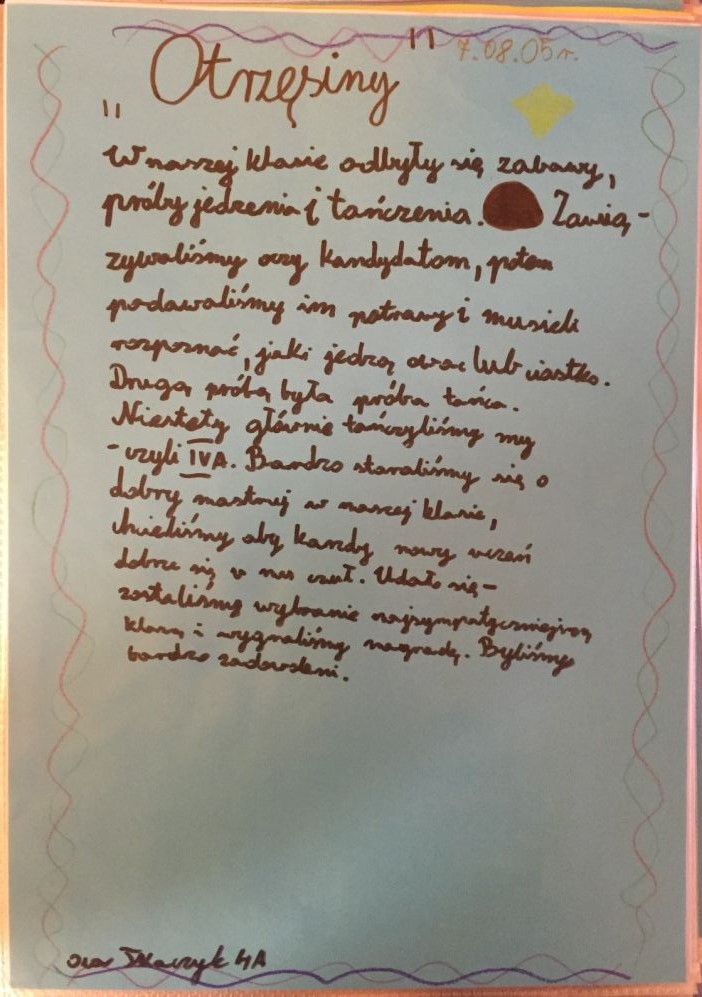 7.08.05 r.
"Otrzęsiny"
W naszej klasie odbyły się zabawy,
próby jedzenia i tańczenia. Zawią-
zywaliśmy oczy kandydatom, potem
podawaliśmy im potrawy i musieli
rozpoznać, jaki jedzą owoc lub ciastko.
Drugą próbą była próba tańca.
Niestety głównie tańczyliśmy my
- czyli IVA. Bardzo staraliśmy się o
dobry nastruj w naszej klasie,
chcieliśmy aby każdy nowy uczeń
dobrze się w nas czuł. Udało się -
zostaliśmy wybranie najsympatyczniejszą
klasą i wygraliśmy nagrodę. Byliśmy
bardzo zadowoleni.
4A